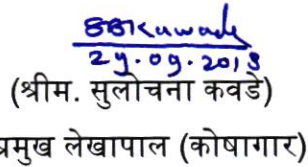 SBKuwade
29.09.2013
(श्रीम. सुलोचना कवडे)
प्रमुख लेखापाल (कोषागार)